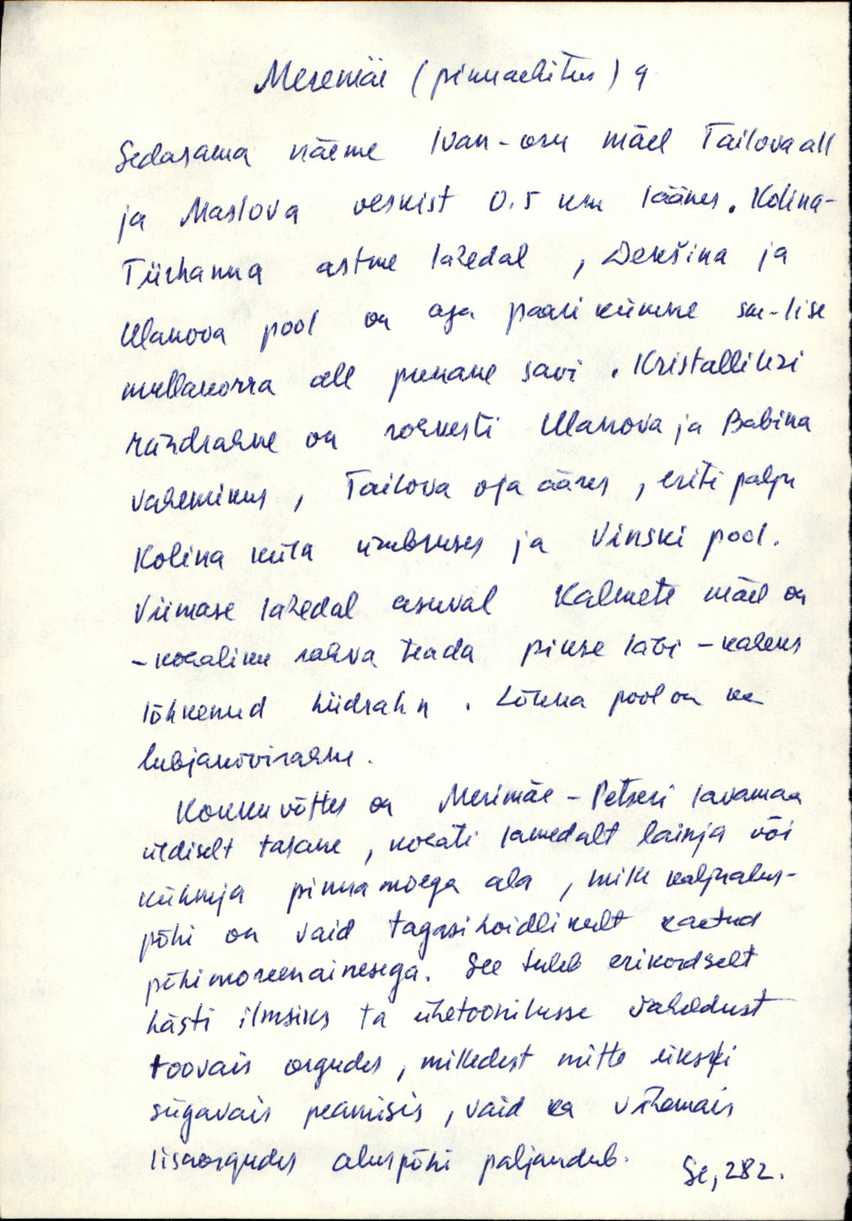 Meremäe (pinnaehitus) 9
Sedasama näeme Ivan-oru mäel Tailova all
ja Maslova veskist 0.5 km läänes. Kolina-
Tiirhanna astme lähedal, Dekšina ja
Ulanova pool on aga paarikümne sm-lise
mullakorra all punane savi. Kristallikivi
rändrahne on rohkesti Ulanova ja Babina
vahemikus, Tailova oja ääres, eriti palju
Kolina küla ümbruses ja Vinski pool.
Viimase lähedal asuval Kalmete mäel on
-kohaliku rahva teada pikse läbi - kaheks
lõhkenud hiidrahn. Lõuna pool on ka
lubjakivirahne.
Kokkuvõttes on Merimäe - Petseri lavamaa
üldiselt tasane, kohati lamedalt lainja või
kühmja pinnamoega ala, mille kaljualus-
põhi on vaid tagasihoidlikult kaetud
põhimoreenainesega. See tuleb erikordselt
hästi ilmsiks ta ühetoonilusse vaheldust
toovais orgudes, milledest mitte üksi
sügavais peamisis, vaid ka vähemais
lisaorgudes aluspõhi paljandub. Se, 282.